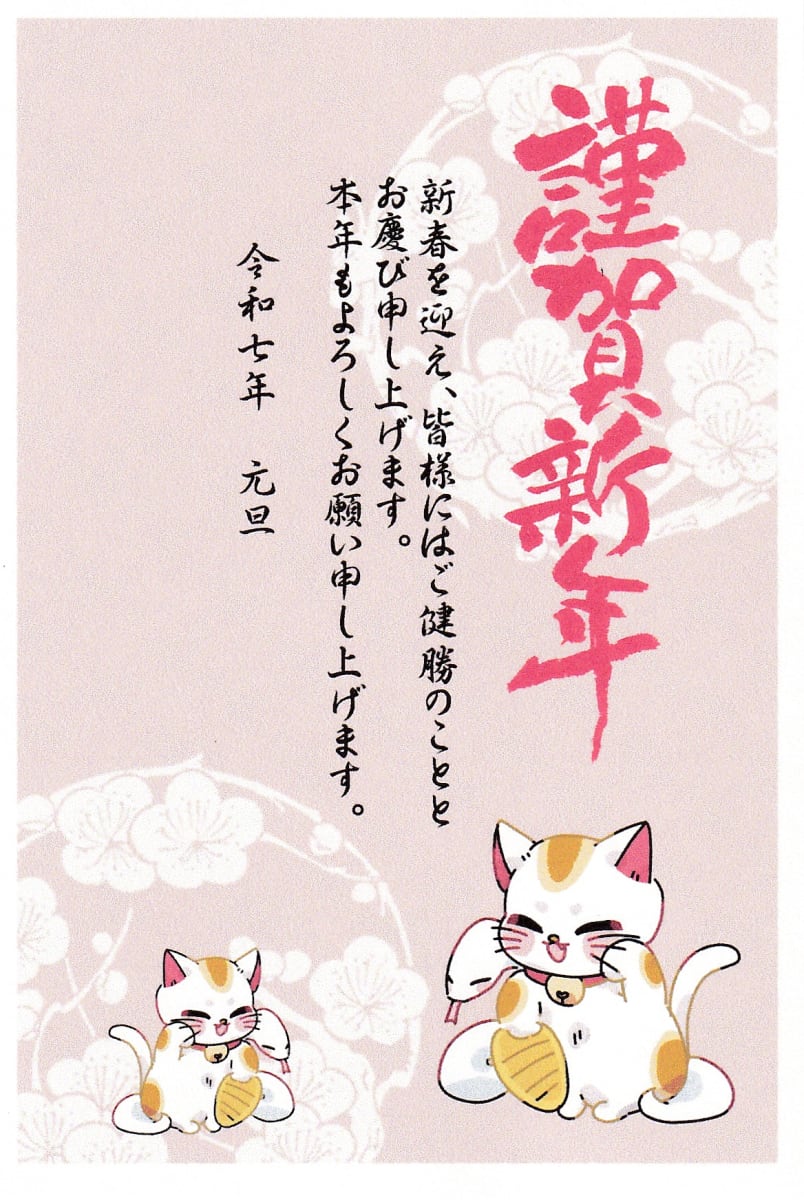 謹賀新年
新春を迎え、皆様にはご健勝のことと
お慶び申し上げます。
本年もよろしくお願い申し上げます。
令和七年　元旦